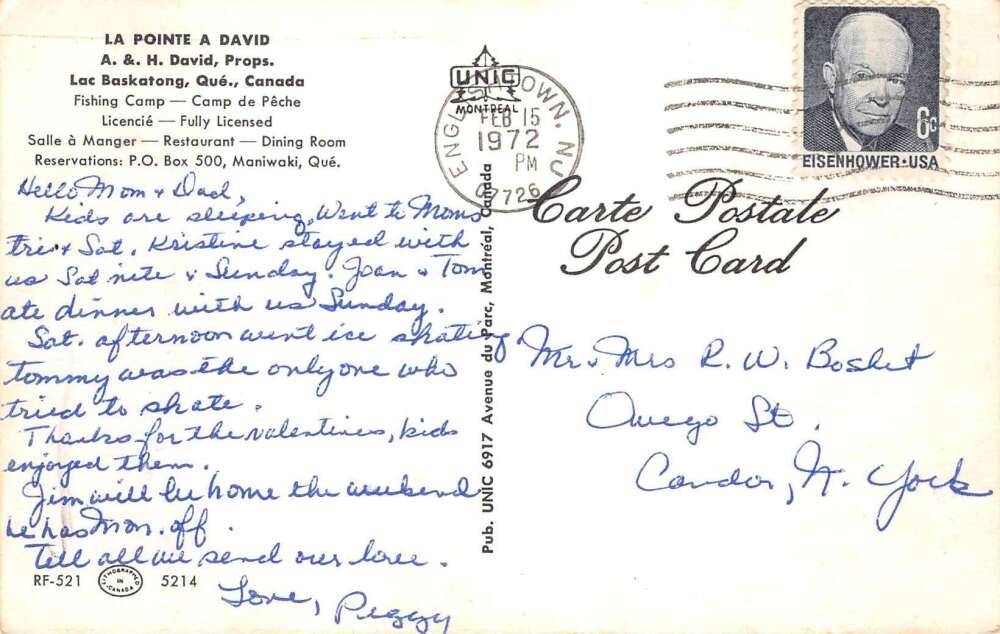 LA POINTE A DAVID
A. & H. David, Props.
Lac Baskatong, Qué., Canada
Fishing Camp — Camp de Pêche
Licencié — Fully Licensed
Salle à Manger — Restaurant — Dining Room
Reservations: P.O. Box 500, Maniwaki, Qué.
Hello Mom & Dad,
Kids are sleeping. Went to Moms
Fri & Sat. Kristine stayed with
us Sat nite & Sunday. Joan & Tom
ate dinner with us Sunday.
Sat. afternoon went ice skating
Tommy was the only one who
tried to skate.
Thanks for the valentines, kids
enjoyed them.
Jim will be home the weekend
he has Mon. off.
Tell all we send our love.
Love, Peggy
RF-521
LITHOGRAPHED
IN
CANADA
5214
UNIC
MONTREAL
Pub. UNIC 6917 Avenue du Parc, Montréal, Canada
ENGLISHTOWN, NJ
FEB 15
1972
PM
07726
6c
EISENHOWER·USA
Carte Postale
Post Card
Mr & Mrs R. W.
Owego St.
Candor, N. York